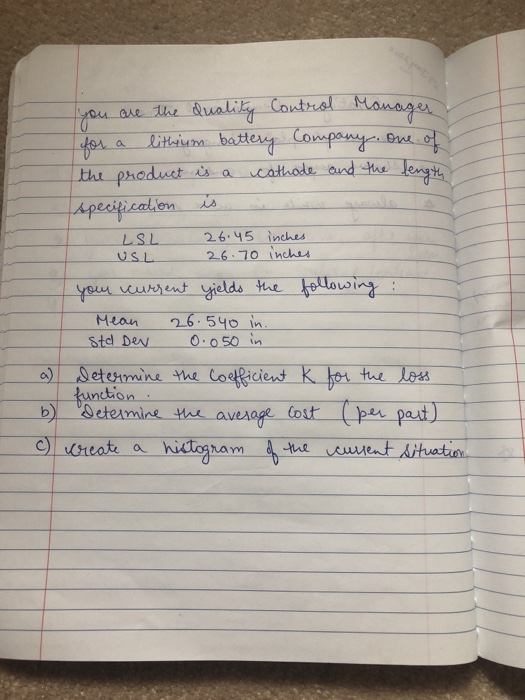 you are the Quality Control Manager
for a lithium battery Company. one of
the product is a cathode and the length
specification is
LSL 26.45 inches
USL 26.70 inches
your current yields the following :
Mean 26.540 in.
Std Dev 0.050 in
a) Determine the Coefficient K for the loss
function.
b) Determine the average Cost (per part)
c) create a histogram of the current situation